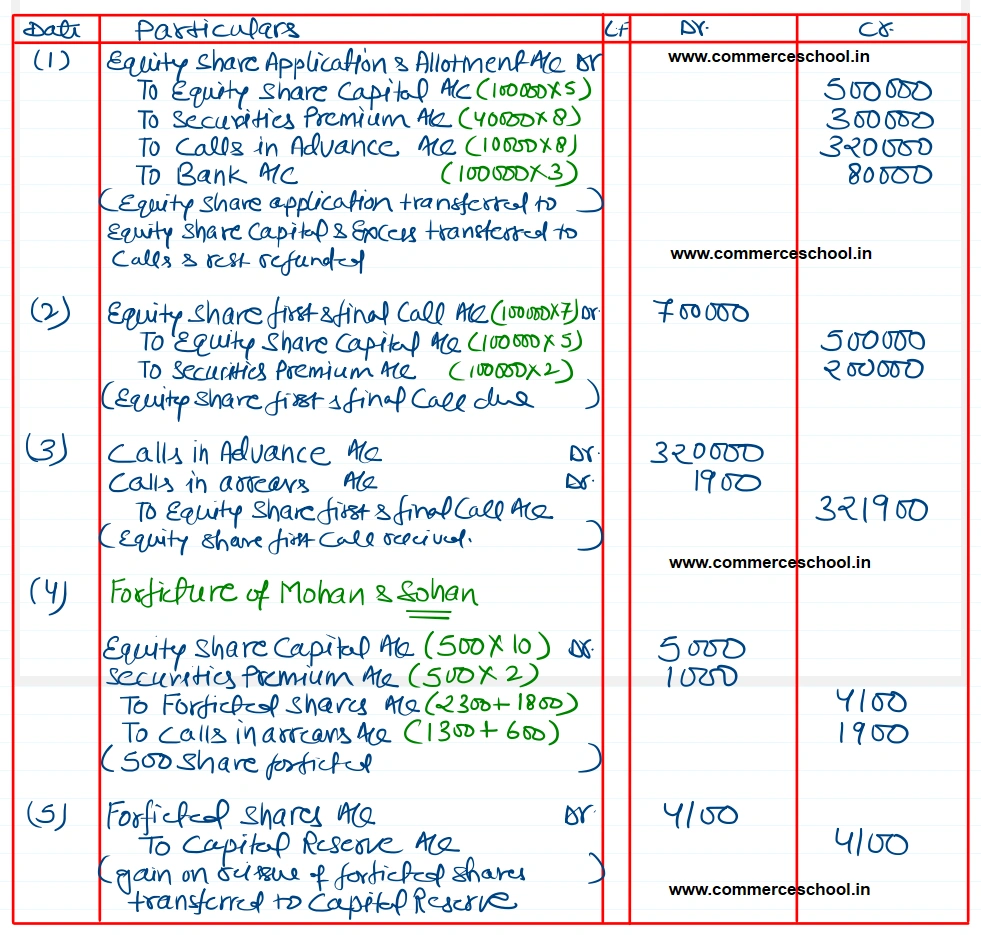 Date Particulars LF Dr. Cr.
(1) Equity Share Application & Allotment A/c Dr www.commerceschool.in
To Equity Share Capital A/c (100000X5) 500000
To Securities Premium A/c (40000X8) 300000
To Calls in Advance A/c (10000X8) 320000
To Bank A/c (100000X3) 80000
(Equity Share application transferred to )
Equity Share Capital & Excess transferred to
Calls & rest refunded www.commerceschool.in
(2) Equity Share first & final Call A/c (100000X7) Dr. 700000
To Equity Share Capital A/c (100000X5) 500000
To Securities Premium A/c (100000X2) 200000
(Equity Share first & final Call due )
(3) Calls in Advance A/c Dr. 320000
Calls in arrears A/c Dr. 1900
To Equity Share first & final Call A/c 321900
(Equity Share first Call received. )
www.commerceschool.in
(4) Forficture of Mohan & Sohan
Equity Share Capital A/c (500X10) Dr. 5000
Securities Premium A/c (500X2) 1000
To Forficted Shares A/c (2300+1800) 4100
To Calls in arrears A/c (1300+600) 1900
(500 Share forficted )
(5) Forficted Shares A/c Dr. 4100
To Capital Reserve A/c 4100
(gain on reissue of forficted shares )
transferred to Capital Reserve www.commerceschool.in